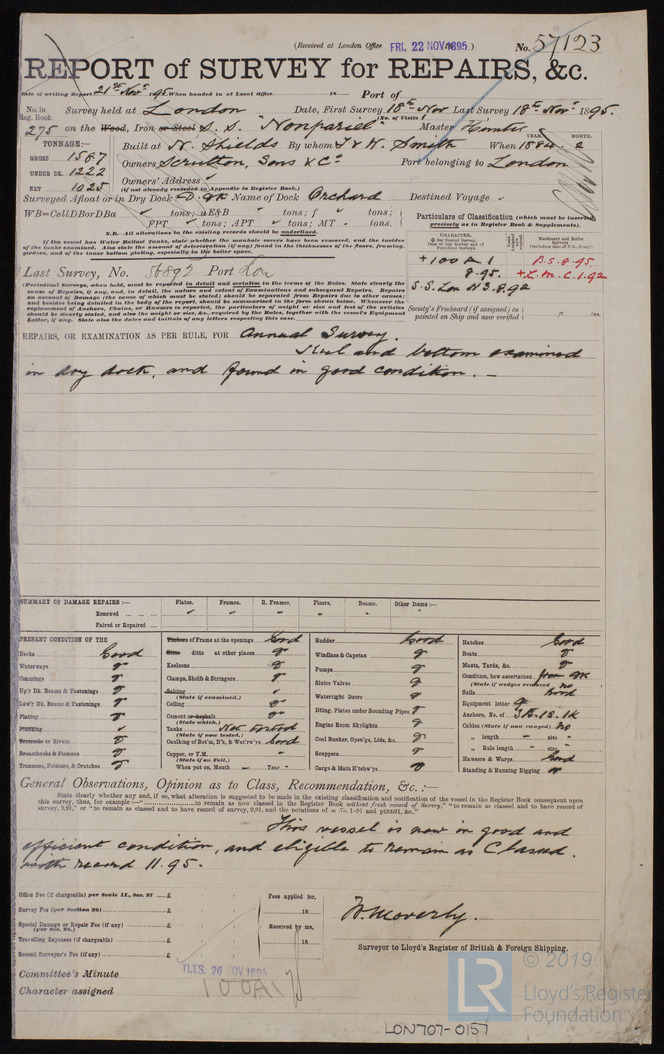 (Received at London Office FRI. 22 NOV 1895) No. 57123
REPORT of SURVEY for REPAIRS, &c.
Date of writing Report 21st Novr 1895 When handed in at Local Office 18 Port of
No. in Reg. Book. Survey held at London Date, First Survey 18th Nov Last Survey 18th Novr 1895.
(No. of Visits 1)
275 on the Wood, Iron or Steel S. S. "Nonpariel" Master
TONNAGE:— Built at N. Shields By whom T & W. Smith When 1884. 2
YEAR. MONTH.
GROSS 1587 Owners Scrutton, Sons & Co Port belonging to London
UNDER DK. 1222 Owners' Address
(if not already recorded in Appendix to Register Book.)
NET 1025
Surveyed Afloat or in Dry Dock D. Dk Name of Dock Orchard Destined Voyage
WB=CellDBorDBa tons; uE&B tons; f tons;
FPT tons; APT tons; MT tons.
Particulars of Classification (which must be inserted precisely as in Register Book & Supplements).
N.B.—All alterations in the existing records should be underlined.
If the vessel has Water Ballast Tanks, state whether the manhole covers have been removed, and the insides
of the tanks examined. Also state the deterioration (if any) found in the thicknesses of the floors, framing,
girders, and of the inner bottom plating, especially in the boiler space.
CHARACTER.
Machinery and Boiler Surveys
+100A1 B.S. 8.95
8.95. +L.M.C. 1.92
S.S. Lon N3. 8.92
Last Survey, No. 56892 Port Lon
(Periodical Surveys, when held, must be reported in detail and seriatim in the terms of the Rules. State clearly the
cause of Repairs, if any, and, in detail, the nature and extent of Examinations and subsequent Repairs. Repairs
on account of Damage (the cause of which must be stated) should be separated from Repairs due to other causes;
and besides being detailed in the body of the report, should be summarised in the form shown below. Whenever the
replacement of Anchors, Chains, or Hawsers is reported, the particulars of weight or size and test of the articles
should be clearly stated, and also the weight or size, &c., required by the Rules, together with the vessel's Equipment
Letter, if any. State also the dates and initials of any letters respecting this case.
Society's Freeboard (if assigned) as painted on Ship and now verified ft. ins.
REPAIRS, OR EXAMINATION AS PER RULE, FOR Annual Survey.
Keel and bottom examined
in dry dock, and found in good condition. —
SUMMARY OF DAMAGE REPAIRS:— Plates. Frames. R. Frames. Floors. Beams. Other Items:—
Renewed
Faired or Repaired
PRESENT CONDITION OF THE
Decks Good
Waterways
Coamings
Up'r Dk. Beams & Fastenings
Low'r Dk. Beams & Fastenings
Plating
Planking
Treenails or Rivets
Breasthooks & Stemson
Transoms, Pointers, & Crutches
Timbers of Frame at the openings Good
Ditto ditto at other places
Keelsons
Clamps, Shelfs & Stringers
Salting
(State if examined.)
Ceiling
Cement or Asphalt
(State which.)
Tanks Not Tested
(State if now tested.)
Caulking of Bot'm, D'k, & Wat'rw'ys Good
Copper, or Y.M.
(State if on Felt.)
When put on, Month — Year
Rudder Good
Windlass & Capstan
Pumps
Sluice Valves
Watertight Doors
Dblng. Plates under Sounding Pipes
Engine Room Skylights
Coal Bunker, Open'gs, Lids, &c.
Scuppers
Cargo & Main H'tchw'ys
Hatches Good
Boats
Masts, Yards, &c.
Condition, how ascertained from Dk
(State if wedges removed) no
Sails Good
Equipment letter
Anchors, No. of 3B. 1S. 1K
Cables (State if now ranged) No
„ length — size
„ Rule length — size
Hawsers & Warps Good
Standing & Running Rigging
General Observations, Opinion as to Class, Recommendation, &c.:—
State clearly whether any and, if so, what alteration is suggested to be made in the existing classification and notification of the vessel in the Register Book consequent upon
this survey, thus, for example:—"to remain as now classed in the Register Book without fresh record of Survey," "to remain as classed and to have record of
survey, 9,91," or "to remain as classed and to have record of survey, 9,91, and the notations of
This vessel is now in good and
efficient condition, and eligible to remain as Classed.
with record 11.95.
Office Fee (if chargeable) per Scale II., Sec. 27 £ Fees applied for,
Survey Fee (per Section 28) £ 18
Special Damage or Repair Fee (if any) £ Received by me,
(per Sec. 28.)
Travelling Expenses (if chargeable) £ 18
Second Surveyor's Fee (if any) £
W. Moverly.
Surveyor to Lloyd's Register of British & Foreign Shipping.
Committee's Minute TUES. 26 NOV 1895
Character assigned 100A1
LR © 2019
Lloyd's Register
Foundation
LON707-0157